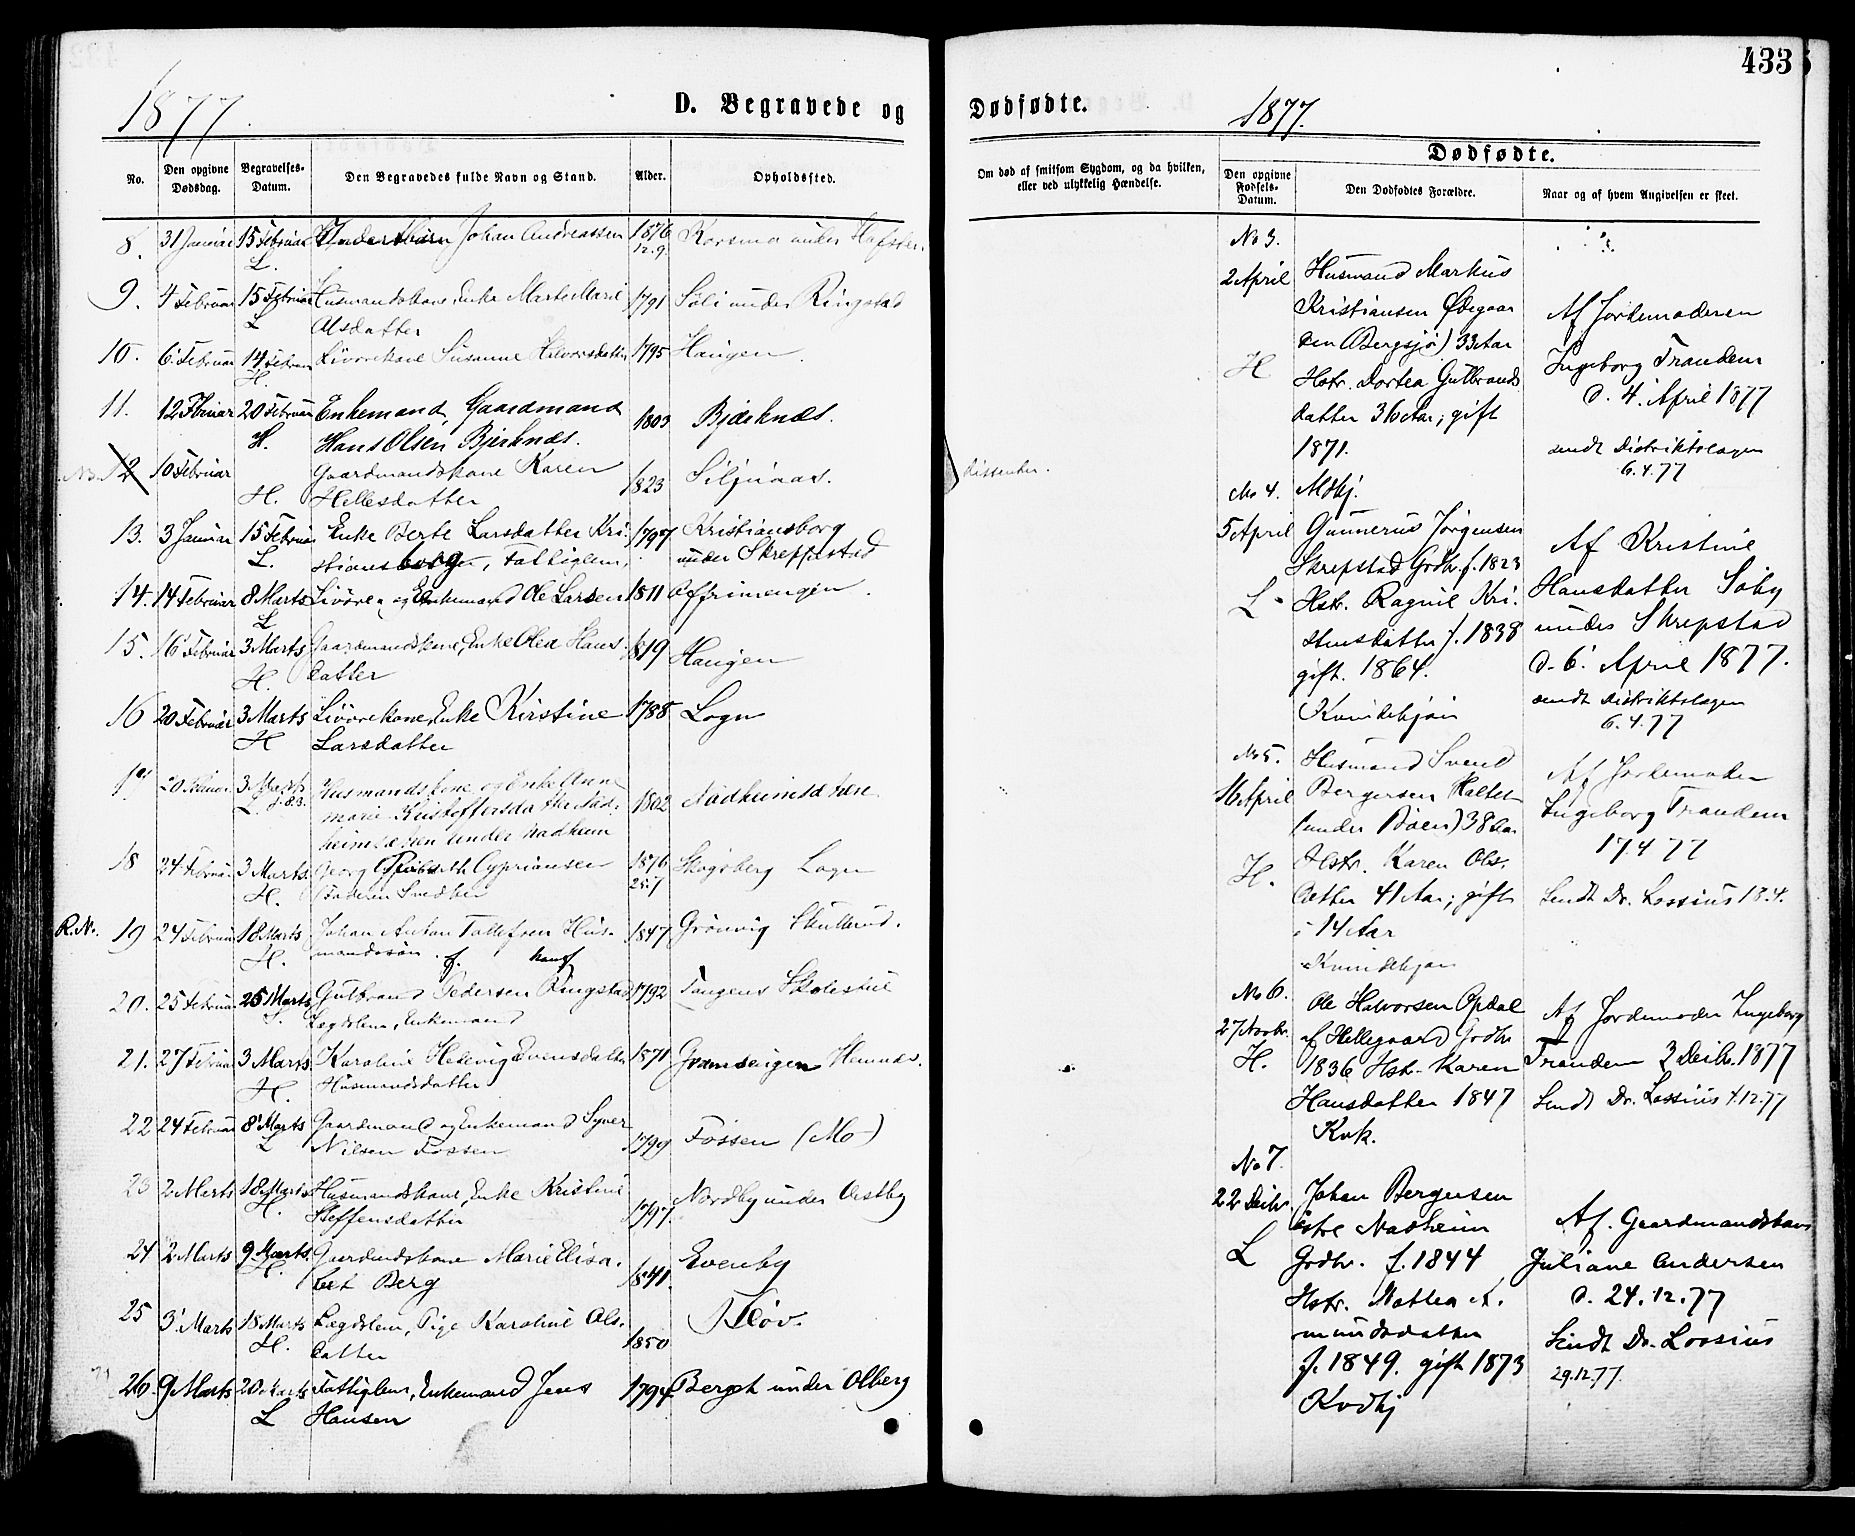 433
1877
D. Begravede og
No.
Den opgivne Dødsdag.
Begravelses-Datum.
Den Begravedes fulde Navn og Stand.
Alder.
Opholdssted.
8. 31 Januar 15 Februar Johan Andreassen 1876 Korsmo under Hafste
L. 12.9
9. 4 Februar 15 Februar Husmandskone, Enke Marte Marie 1791 Søli under Ringstad
L Olsdatter
10. 6 Februar 14 Februar Livørekone Susanne Halvorsdatter 1795 Haugen.
H.
11. 12 Februar 20 Februar Enkemand Gaardmand 1803 Bjerknæs.
H. Hans Olsen Bjerknæs.
12 10 Februar Gaardmandskone Karen 1823 Siljuaas.
H. Hellesdatter
13. 3 Januar 15 Februar Enke Berte Larsdatter Kri- 1797 Kristiansborg
L. stiansborg, Fattiglem, under Skrepstad
14. 14 Februar 8 Marts Livøre og Enkemand Ole Larsen 1811
L
15. 16 Februar 3 Marts Gaardmandskone, Enke Olea Hans- 1819 Haugen
H. datter
16 20 Februar 3 Marts Livørekone, Enke Kirstine 1788 Logn
H Larsdatter
17 20 Februar 3 Marts Husmandskone og Enke Anne 1802 Nadheimsæteren
L. marie Kristoffersdatter Nad-
heimsæteren under Nadheim
18 24 Februar 3 Marts Georg Cypriansen 1876 Skogsberg Logn
H. (Faderen Smed 25.7
R.No. 19 24 Februar 18 Marts Johan Anton Tollefsen Hus- 1847 Grønvig Skullerud.
H. mandssøn.
20. 25 Februar 25 Marts Gulbrand Pedersen Ringstad 1792 Tangens Skolestue
Lægdslem, Enkemand
21. 27 Februar 3 Marts Karoline Helevig Evensdatter 1871 Gramsengen Hemnæs.
H. Husmandsdatter
22 24 Februar 8 Marts Gaardmand og Enkemand Syver 1799 Fossen (Mo)
L Nilsen Fossen
23 2 Marts 18 Marts Husmandskone, Enke Kristine 1797. Nordby under Østby
H. Steffensdatter
24 2 Marts 9 Marts Gaardmdskone Marie Elisa- 1841. Evenby
H. bet Berg
25 3 Marts 18 Marts Lægdslem, Pige Karoline Ols- 1850 Kløv.
H. datter
26. 9 Marts 20 Marts Fattiglem, Enkemand Jens 1794 Berget under Olberg
L Hansen
Dødfødte.
1877.
Om død af smitsom Sygdom, og da hvilken, eller ved ulykkelig Hændelse.
Dødfødte.
Den opgivne Fødsels-Datum.
Den Dødfødtes Forældre.
Naar og af hvem Angivelsen er skeet.
dissenter.
No 3.
2 April Husmand Markus
Kristiansen Ødegaar
den (Bergsjø) 33 Aar
H Hstr. Dortea Gulbrands
datter 36 Aar, gift
1871.
Mdkj.
Af Jordemoderen
Ingeborg Trandem
d. 4. April 1877
sendt Distriktslægen
6.4.77
No 4.
5 April Gunnerus Jørgensen
Skrepstad Grdbr. f. 1823
L. Hstr. Ragnil Kri-
stensdatter f. 1838
gift. 1864.
Kvindekjøn
Af Kristine
Hansdatter Søby
under Skrepstad
d. 6. April 1877.
sendt Distriktslægen
6.4.77
No 5.
16 April Husmand Svend
Bergersen Haltet
(under Bøen) 38 Aar
H. Hstr. Karen Ols-
datter 41 Aar, gift
i 14 Aar
Kvindekjøn
Af Jordemoder
Ingeborg Trandem
17.4 77
Sendt Dr. Lossius 18.4.
No 6.
27 Novbr. Ole Halvorsen Opdal
H. af Hellegaard Grdbr
1836 Hstr. Karen
Hansdatter 1847
Kvk.
Af Jordemoder Ingeborg
Trandem 3 Decbr. 1877
Sendt Dr. Lossius 4.12.77
No 7.
22 Decbr. Johan Bergersen
østre Nadheim
L Grdbr. f. 1844
Hstr. Mattea A.
mundsdatter
f. 1849. gift 1873
Kvdkj
Af. Gaardmandskone
Juliane Andersen
d. 24.12.77
Sendt Dr. Lossius
29.12.77.